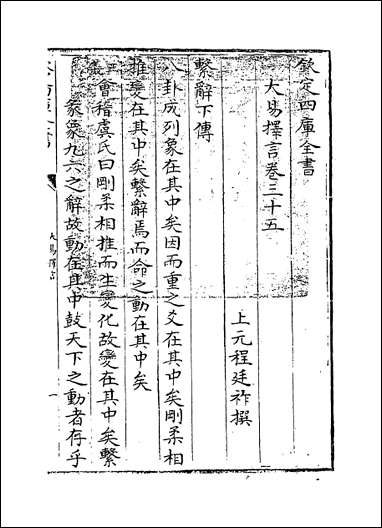 欽定四庫全書
大易擇言卷三十五
上元程廷祚撰
繫辭下傳
八卦成列象在其中矣因而重之爻在其中矣剛柔相
推變在其中矣繫辭焉而命之動在其中矣
會稽虞氏曰剛柔相推而生變化故變在其中矣繫
彖象九六之辭故動在其中鼓天下之動者存乎
大易擇言
一